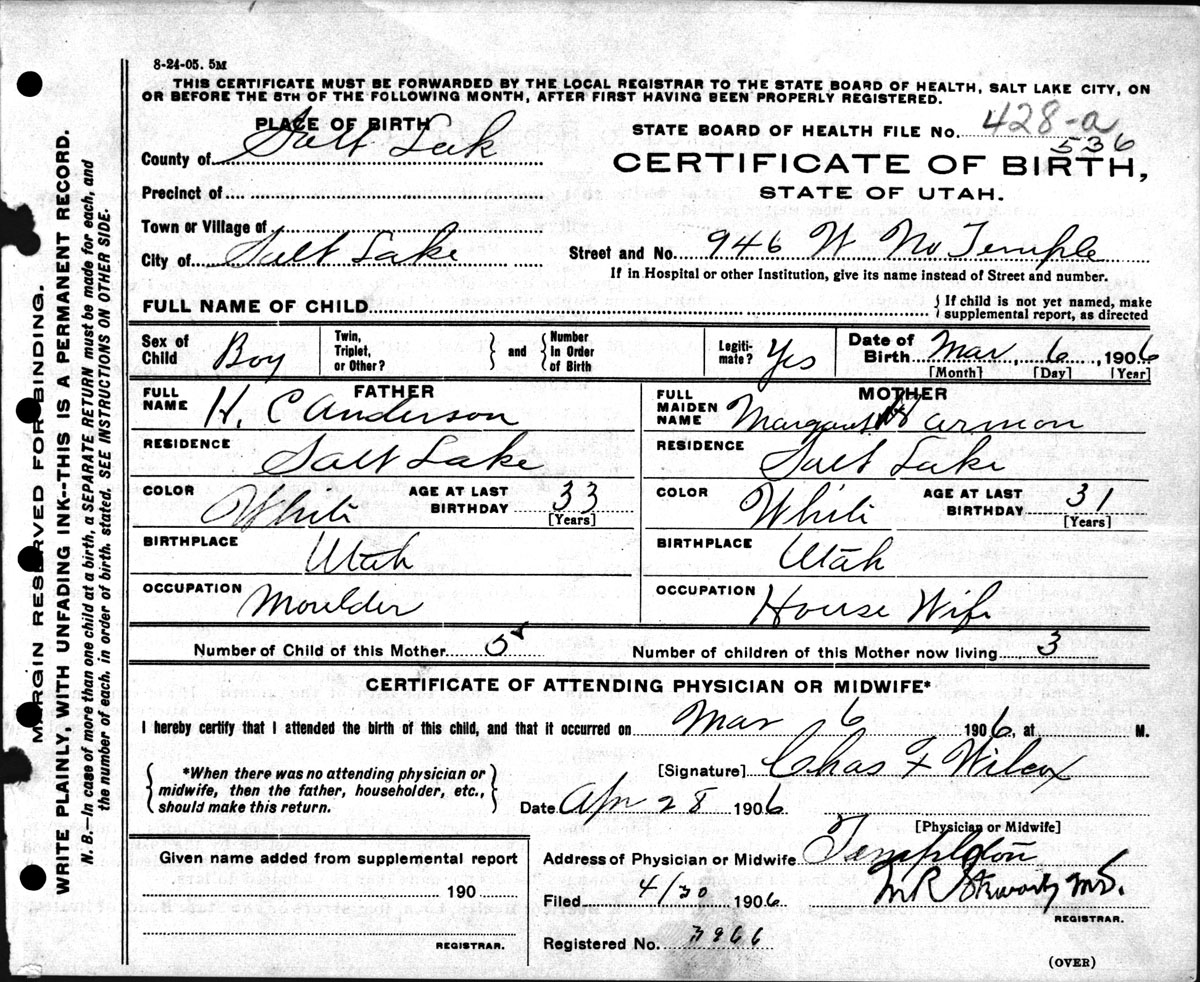 8-24-05. 5M
THIS CERTIFICATE MUST BE FORWARDED BY THE LOCAL REGISTRAR TO THE STATE BOARD OF HEALTH, SALT LAKE CITY, ON
OR BEFORE THE 5TH OF THE FOLLOWING MONTH, AFTER FIRST HAVING BEEN PROPERLY REGISTERED.
PLACE OF BIRTH
STATE BOARD OF HEALTH FILE No. 428-a
536
County of Salt Lake
CERTIFICATE OF BIRTH,
STATE OF UTAH.
Precinct of
Town or Village of
City of Salt Lake
Street and No. 946 W No Temple
If in Hospital or other Institution, give its name instead of Street and number.
FULL NAME OF CHILD
If child is not yet named, make
supplemental report, as directed
Sex of Child Boy
Twin, Triplet, or Other?
and
Number In Order of Birth
Legiti-mate? Yes
Date of Birth Mar 6, 1906
[Month] [Day] [Year]
FATHER
FULL NAME H. C Anderson
RESIDENCE Salt Lake
COLOR White
AGE AT LAST BIRTHDAY 33
[Years]
BIRTHPLACE Utah
OCCUPATION Moulder
MOTHER
FULL MAIDEN NAME Margaret Harmon
RESIDENCE Salt Lake
COLOR White
AGE AT LAST BIRTHDAY 31
[Years]
BIRTHPLACE Utah
OCCUPATION House Wife
Number of Child of this Mother 5
Number of children of this Mother now living 3
CERTIFICATE OF ATTENDING PHYSICIAN OR MIDWIFE*
I hereby certify that I attended the birth of this child, and that it occurred on Mar 6 1906, at M.
*When there was no attending physician or
midwife, then the father, householder, etc.,
should make this return.
[Signature] Chas F Wilcox
Date Apr 28 1906
[Physician or Midwife]
Given name added from supplemental report
190
REGISTRAR.
Address of Physician or Midwife Templeton
Filed 4/30 1906
M R Stewart M.D.
REGISTRAR.
Registered No. 3966
(OVER)
MARGIN RESERVED FOR BINDING.
WRITE PLAINLY, WITH UNFADING INK--THIS IS A PERMANENT RECORD.
N. B.—In case of more than one child at a birth, a SEPARATE RETURN must be made for each, and
the number of each, in order of birth, stated. SEE INSTRUCTIONS ON OTHER SIDE.